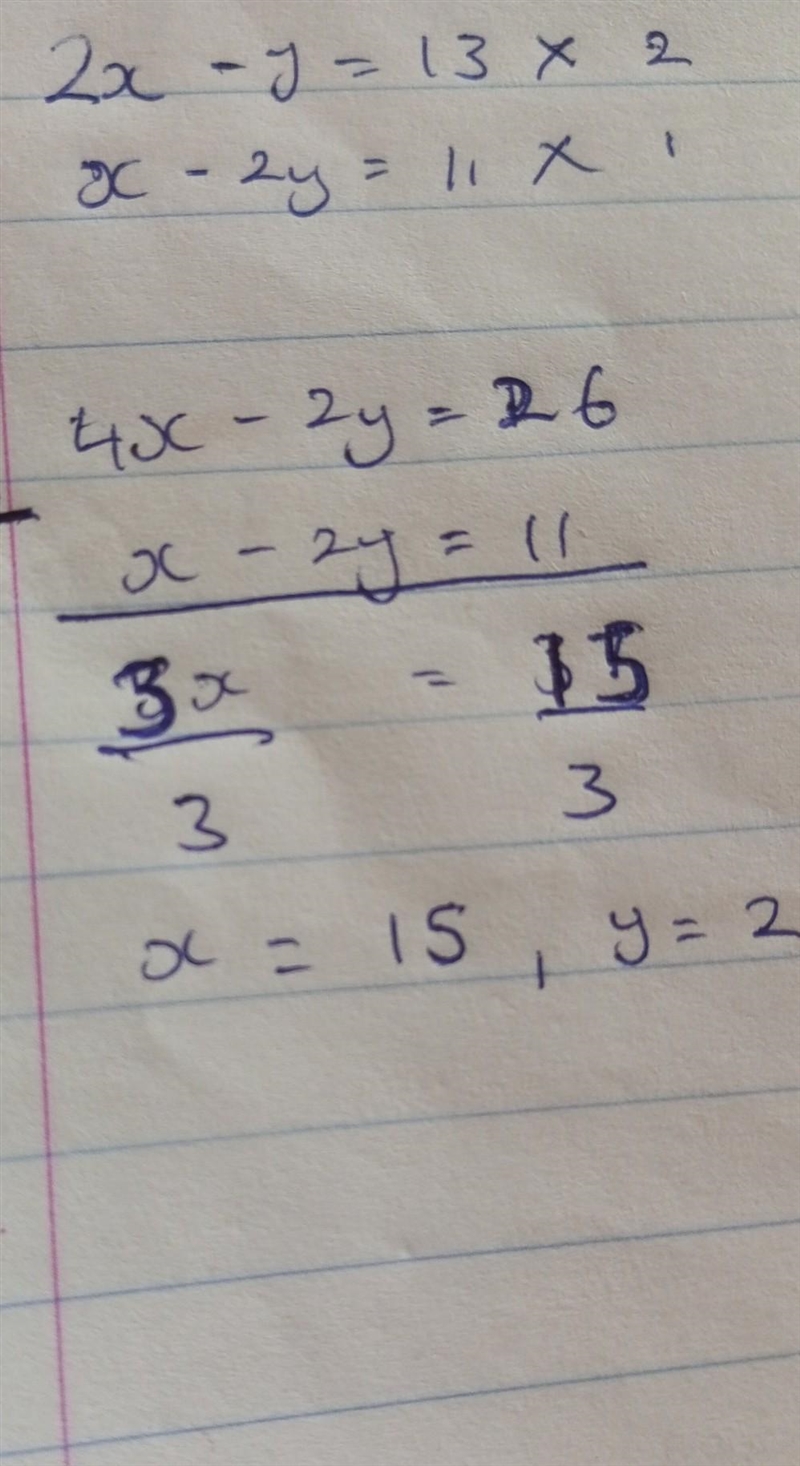 2x - y = 13 × 2
x - 2y = 11 × 1
4x - 2y = 26
- x - 2y = 11
3x = 15
3 3
x = 15, y = 2